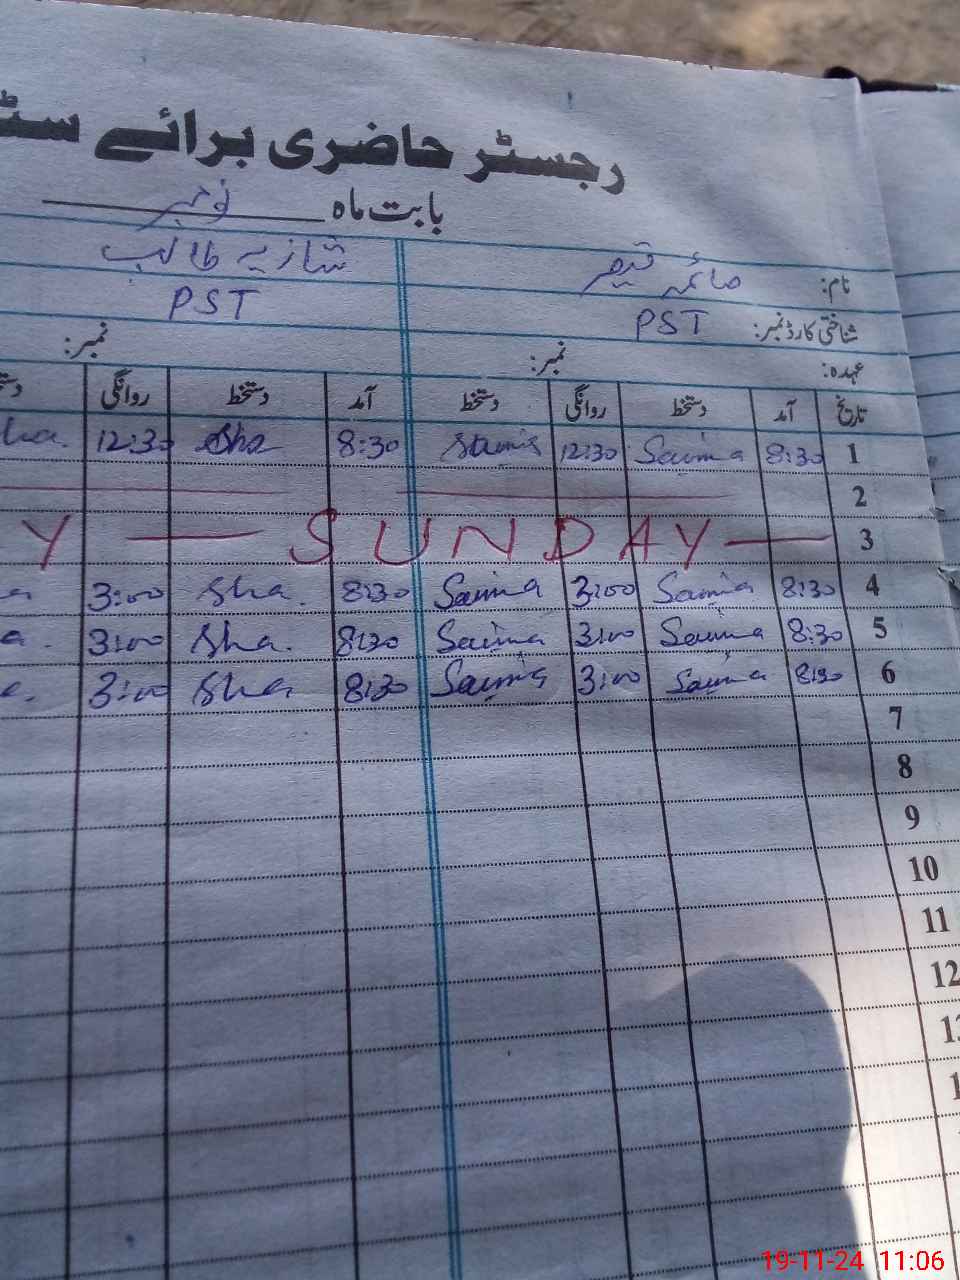 رجسٹر حاضری برائے سٹ
بابت ماہ نومبر
نام: صائمہ قیصر شازیہ طالب
شناختی کارڈ نمبر: PST PST
عہدہ: نمبر: نمبر:
تاریخ آمد دستخط روانگی دستخط آمد دستخط روانگی
1 8:30 Saima 12:30 Saima 8:30 Sha 12:30 ha.
2
3 Y — SUNDAY —
4 8:30 Saima 3:00 Saima 8:30 Sha. 3:00 a
5 8:30 Saima 3:00 Saima 8:30 Sha. 3:00 a.
6 8:30 Saima 3:00 Saima 8:30 Sha 3:00
7
8
9
10
11
12
19-11-24 11:06